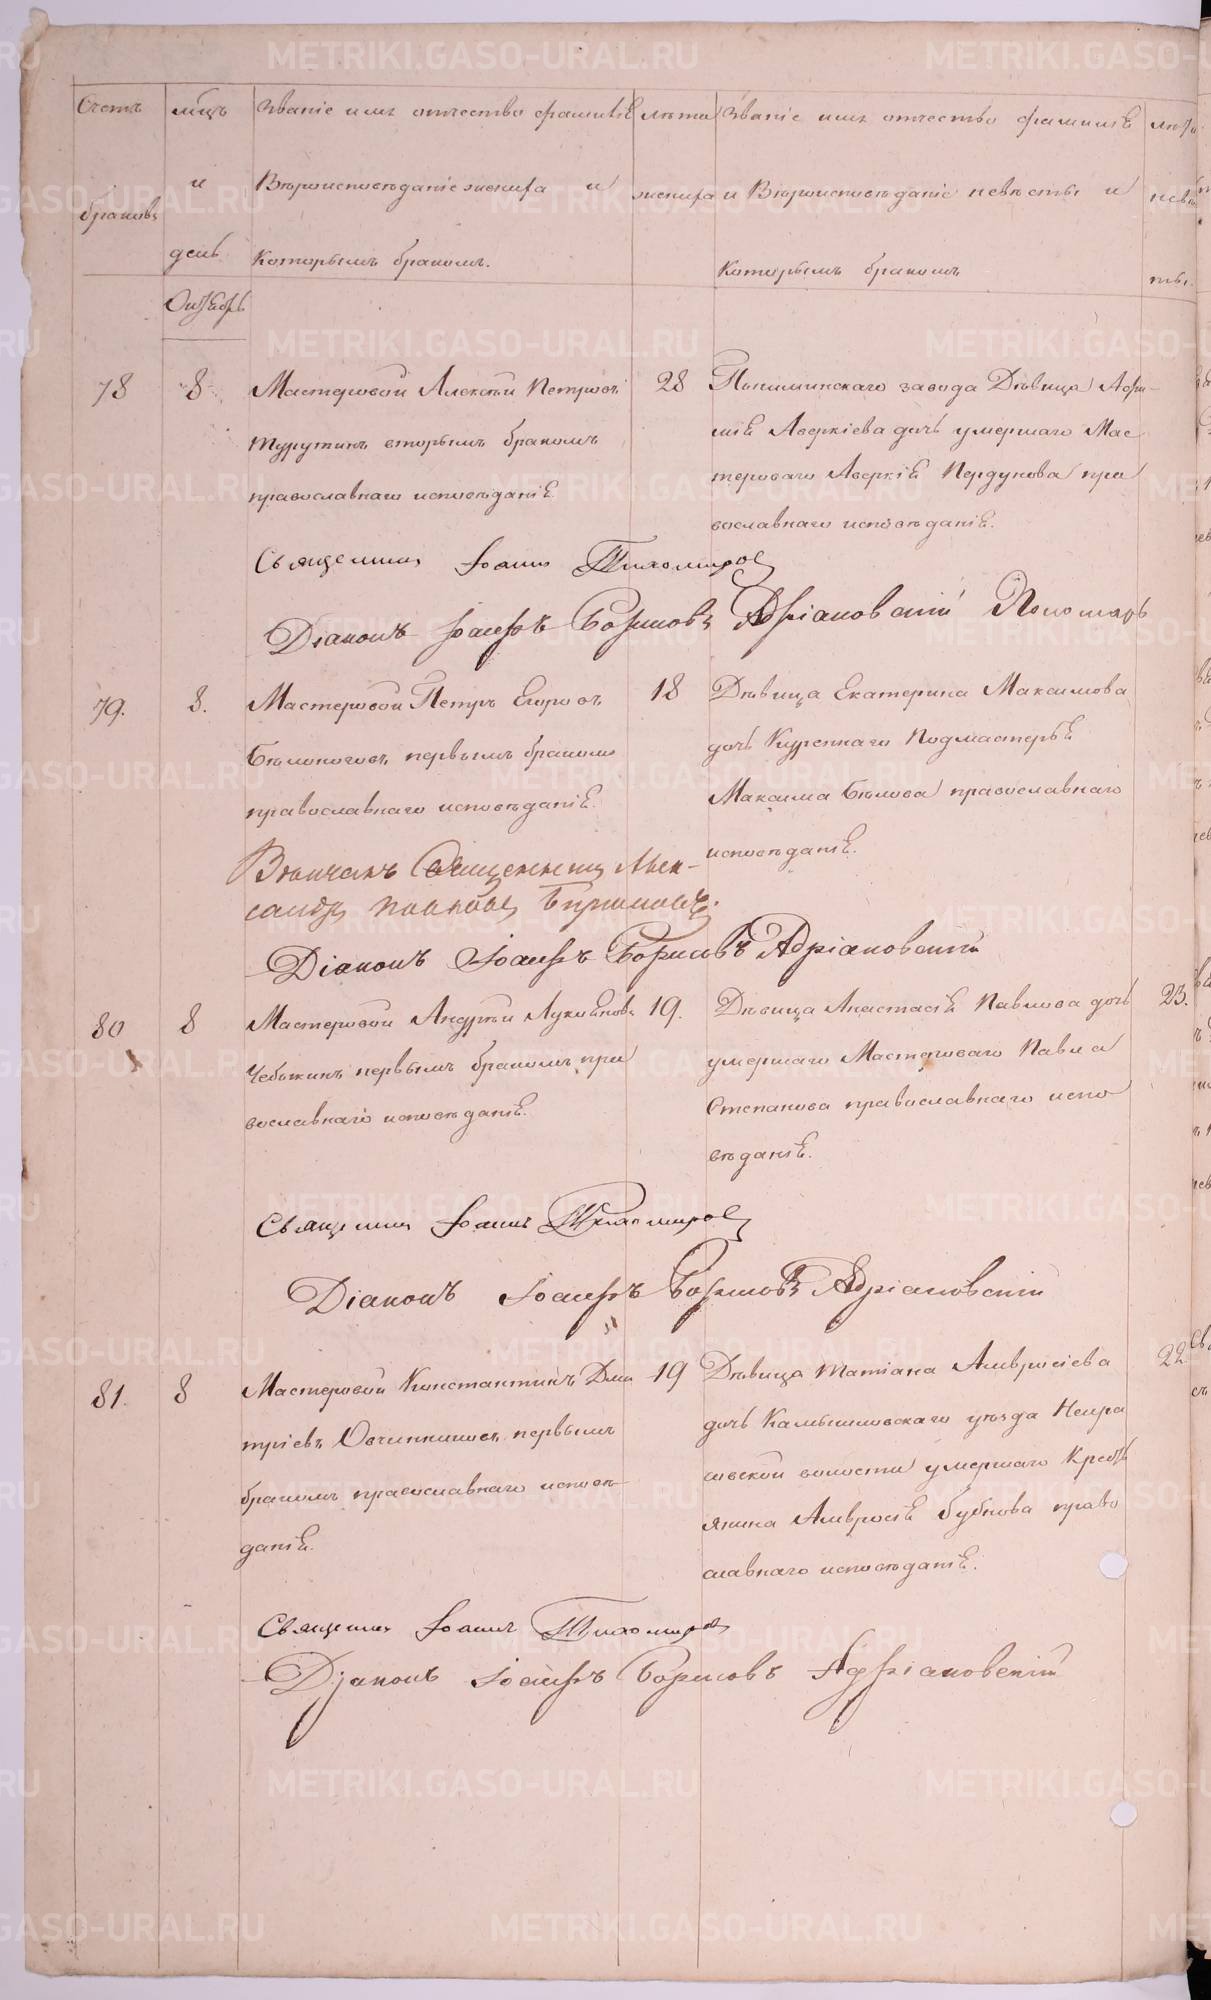 Счетъ
браковъ
мцъ
и
день
Званіе имя отчество фамилія
Вѣроисповѣданіе жениха и
которымъ бракомъ.
лѣта
жениха
Званіе имя отчество фамилія
и Вѣроисповѣданіе невѣсты и
которымъ бракомъ
лѣта
невѣс
ты.
Октябрь
78
8
Мастеровой Алексѣй Петровъ
Турутинъ вторымъ бракомъ
православнаго исповѣданія
28
Пышминскаго завода Дѣвица
Аверкіева дочь умершаго Мас
терового Аверкія Пердунова пра
вославнаго исповѣданія.
Священникъ Іоаннъ Тихомировъ
Діаконъ Іосифъ Борисовъ Адріановскій Пономарь
79.
8.
Мастеровой Петръ Егоровъ
Бѣлоноговъ первымъ бракомъ
православнаго исповѣданія.
18
Дѣвица Екатерина Максимова
дочь Куреннаго Подмастерья
Максима Бѣлова православнаго
исповѣданія.
Вѣнчалъ Священникъ Алек-
сандръ
Діаконъ Іосифъ Борисовъ Адріановскій
80
8
Мастеровой Андрей Лукояновъ
Чебыкинъ первымъ бракомъ пра
вославнаго исповѣданія.
19.
Дѣвица Анастасія Павлова дочь
умершаго Мастероваго Павла
Степанова православнаго испо
вѣданія.
23.
Священникъ Іоаннъ Тихомировъ
Діаконъ Іосифъ Борисовъ Адріановскій
81.
8
Мастеровой Константинъ Дми
тріевъ Овчинниковъ первымъ
бракомъ православнаго исповѣ-
данія.
19
Дѣвица Татіана Амвросіева
дочь Камышловскаго уѣзда
волости умершаго Кресть
янина Амвросія Бубнова право
славнаго исповѣданія.
22
Священникъ Іоаннъ Тихомировъ
Діаконъ Іосифъ Борисовъ Адріановскій
METRIKI.GASO-URAL.RU